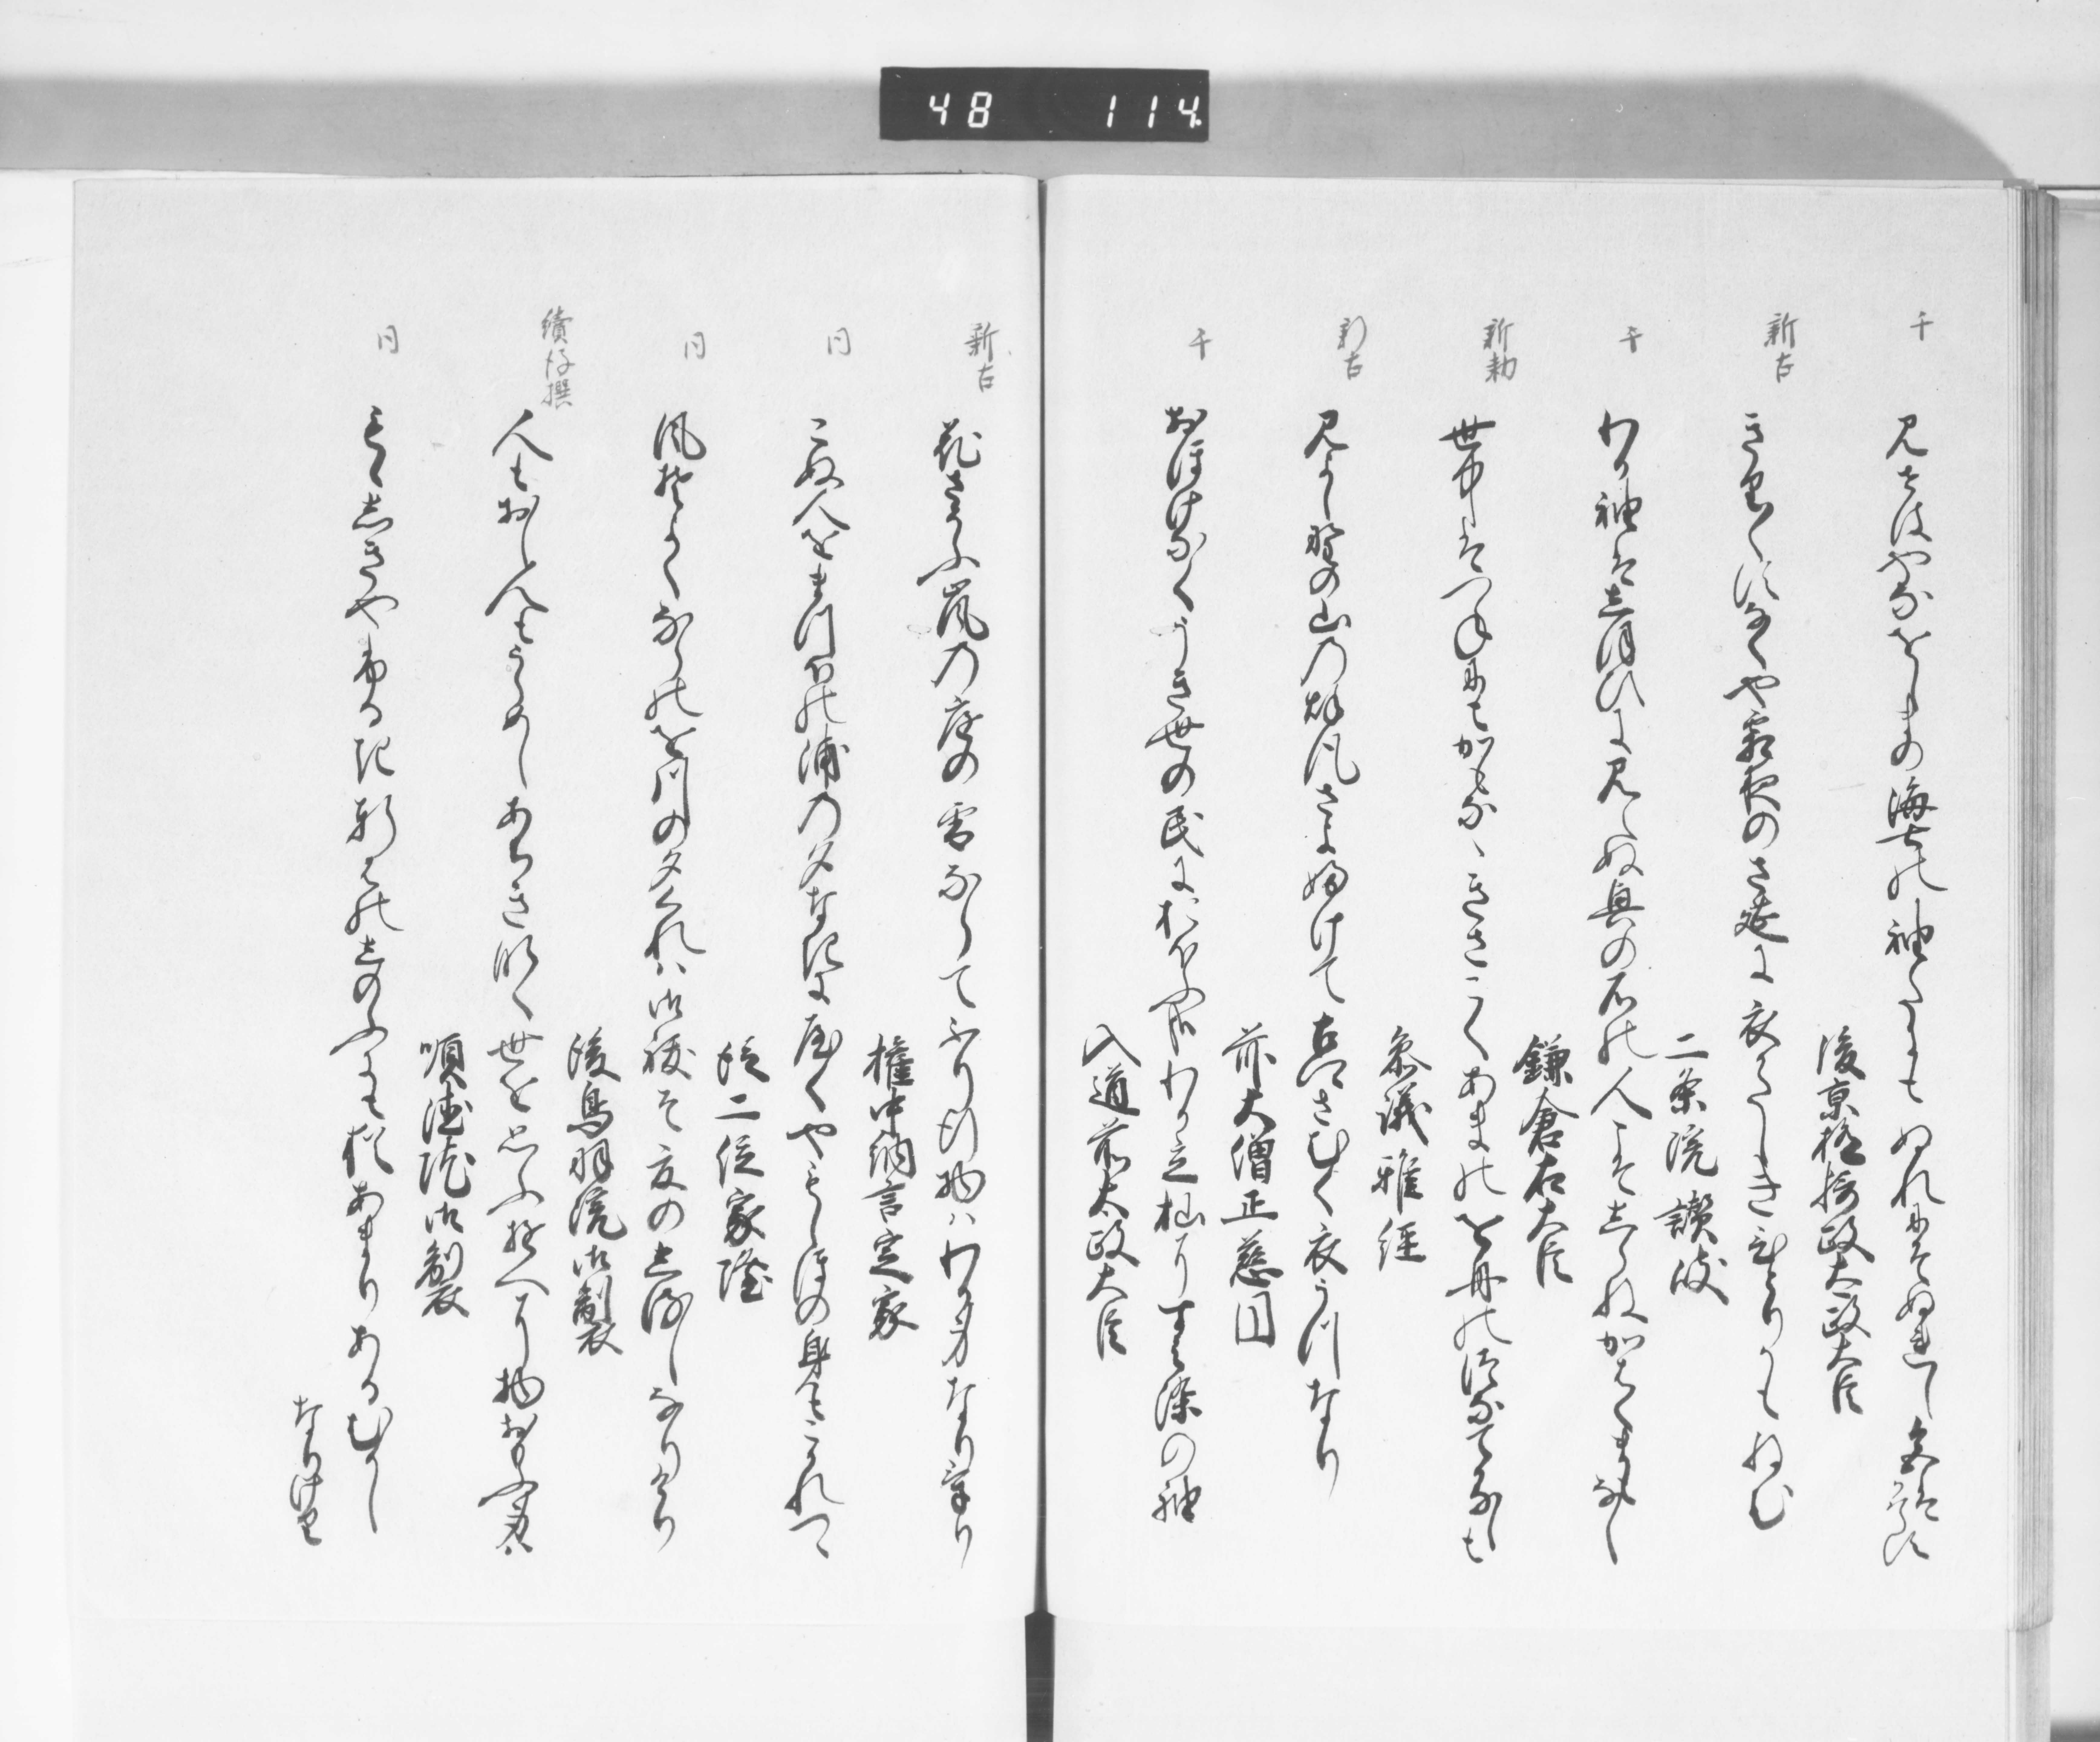 48 114
千
見せはやなをしまの海士の袖たにもぬれにそぬれし色はかはらす
後京極摂政太政大臣
新古
きり〳〵すなくや霜夜のさ莚に衣かたしきひとりかもねむ
二条院讃岐
千
わか袖はしほひに見えぬ奥の石の人こそしらねかはくまもなし
鎌倉右大臣
新勅
世中はつねにもかもなゝきさこくあまのを舟の綱手かなしも
参議雅経
新古
見よし野の山の秋風さよふけて古郷さむく衣うつなり
前大僧正慈円
千
おほけなくうき世の民におほふ哉わか立杣にすみ染の袖
入道前太政大臣
新古
花さそふ嵐の庭の雪ならてふり行物はわか身なりけり
権中納言定家
同
こぬ人をまつほの浦の夕なきにやくやもしほの身もこかれつゝ
従二位家隆
同
風そよくならのを川の夕くれは御祓そ夏のしるしなりける
後鳥羽院御製
続後撰
人もおし人もうらめしあちきなく世を思ふゆへに物おもふ身は
順徳院御製
同
もゝしきやふるき軒はのしのふにも猶あまりあるむかし
なりけり